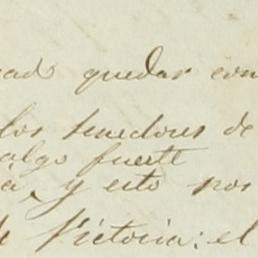 quedar con
los tenedores de
algo fuerte
y esto nos
de Victoria: el